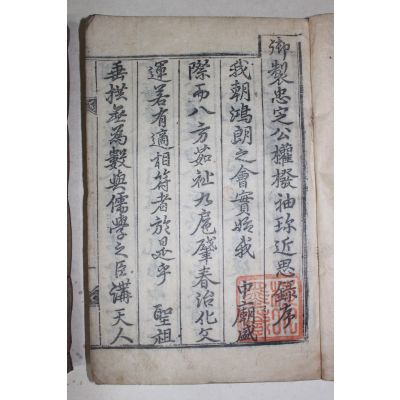 御製忠定公權撥袖珍近思錄序
我朝鴻朗之會實始我 中廟盛
際而八方茹祉九扈肇春治化文
運若有適相符者於是乎 聖祖
垂拱無為數與儒學之臣講天人